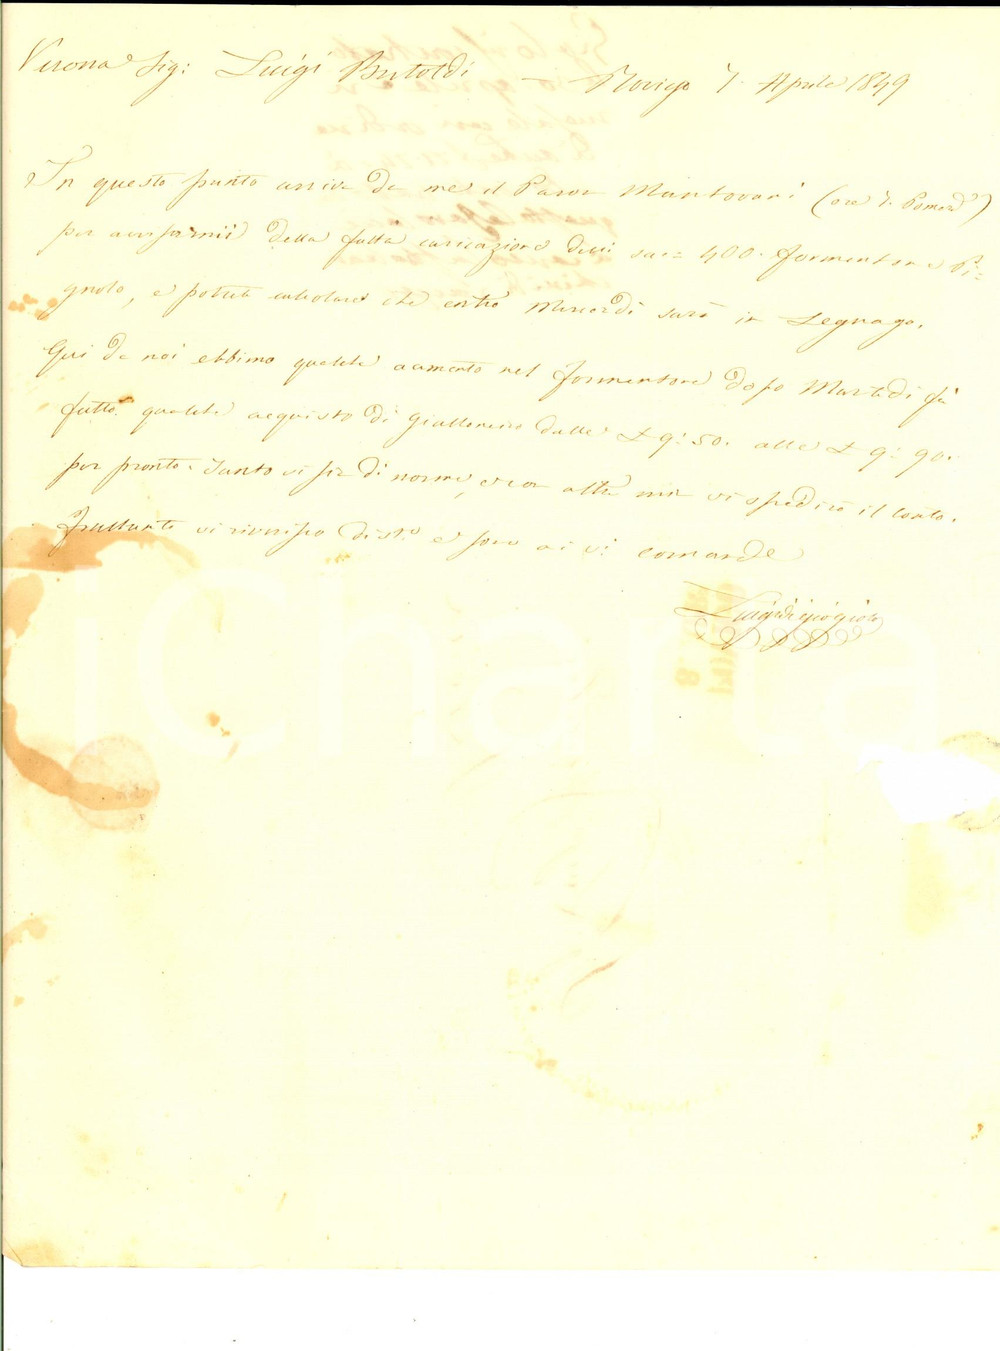 Verona Sig: Luigi Bertoldi — Rovigo 7. Aprile 1849
In questo punto arriva da me il Paron Mantovani (ore 7. Pomed.e)
per avvisarmi della fatta caricazione delli sac. 400. formentone Pi=
gnolo, e potete calcolare che entro Mercordì sarà in Legnago.
Qui da noi ebbimo qualche aumento nel formentone dopo Martedì fu
fatto qualche acquisto di Gialloncino dalle £ 9:50. alle £ 9:90.
per pronto. Tanto vi sia di norma, e con altra mia vi spedirò il conto.
Frattanto vi riverisco dist.o e sono ai v.i comandi
Luigi di
ICharta